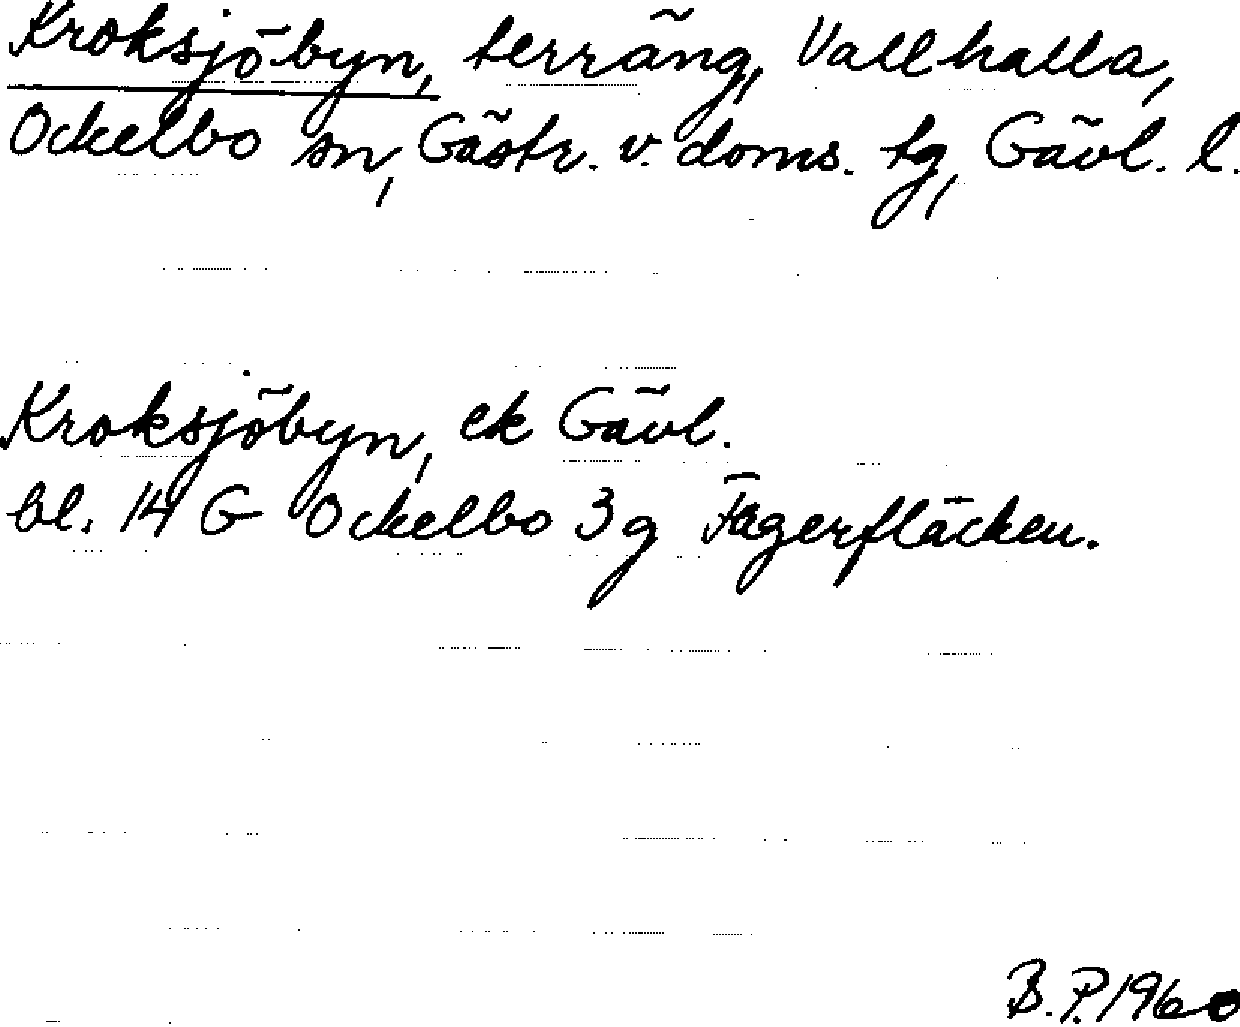 Kroksjöbyn, terräng, Vallhalla,
Ockelbo sn, Gästr. v. doms. tg, Gävl. l.
Kroksjöbyn, ek Gävl.
bl. 14 G Ockelbo 3 g Fagerfläcken.
B.P. 1960